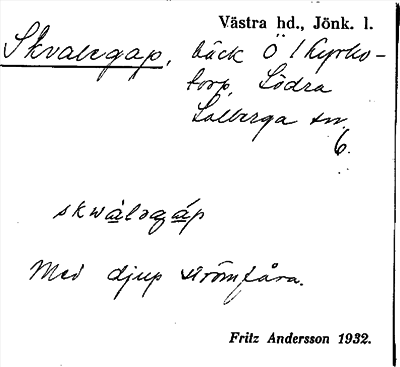 Västra hd., Jönk. l.
Skvalegap, bäck Ö l Kyrko-
torp, Södra
Solberga sn.
6.
skwàləgáp
Med djup strömfåra.
Fritz Andersson 1932.